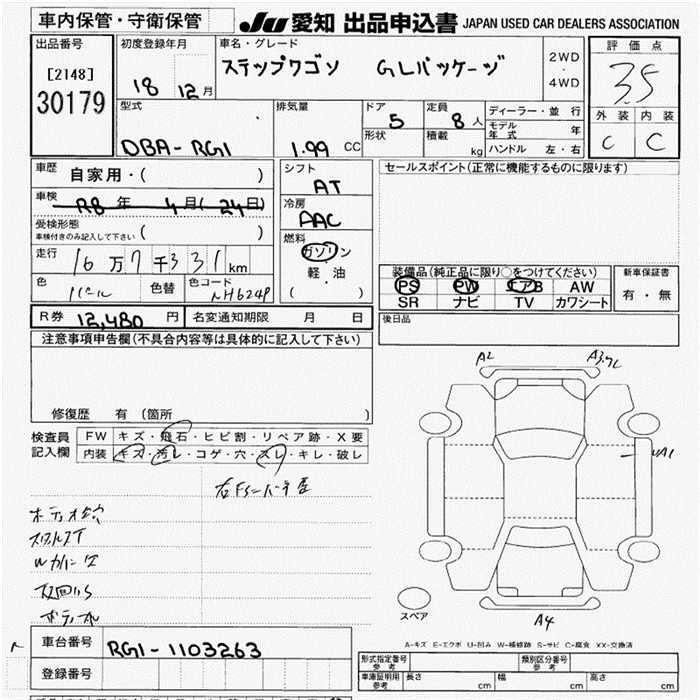 車内保管・守衛保管
JU 愛知 出品申込書 JAPAN USED CAR DEALERS ASSOCIATION
出品番号
[2148]
30179
初度登録年月
18 12月
車名・グレード
ステップワゴン GLパッケージ
2WD
・
4WD
評価点
3.5
外装 内装
C C
型式
DBA-RG1
排気量
1.99 CC
ドア
5
形状
定員
8人
積載
kg
ディーラー・並行
モデル年式 年
ハンドル 左・右
車歴
自家用・( )
車検
R8年 4月(24日)
受検形態
車検付きのみ記入して下さい ( )
走行
16万7千331km
色
パール
色替
色コード
NH624P
シフト
AT
冷房
AAC
燃料
ガソリン
軽・油
( )
セールスポイント(正常に機能するものに限ります)
装備品(純正品に限り○をつけてください)
PS PW エアB AW
SR ナビ TV カワシート
新車保証書
有・無
R券 12,480円
名変通知期限 月 日
後日品
注意事項申告欄(不具合内容等は具体的に記入して下さい)
修復歴 有 (箇所 )
検査員
記入欄
FW キズ・飛石・ヒビ割・リペア跡・X要
内装 キズ・汚レ・コゲ・穴・スレ・キレ・破レ
A2
A1
A4
スペア
A-キズ E-エクボ U-凹み W-補修跡 S-サビ C-腐食 XX-交換済
車台番号
RG1-1103263
登録番号
形式指定番号
参考
類別区分番号
参考
車庫証明用
参考
長さ cm
幅 cm
高さ cm